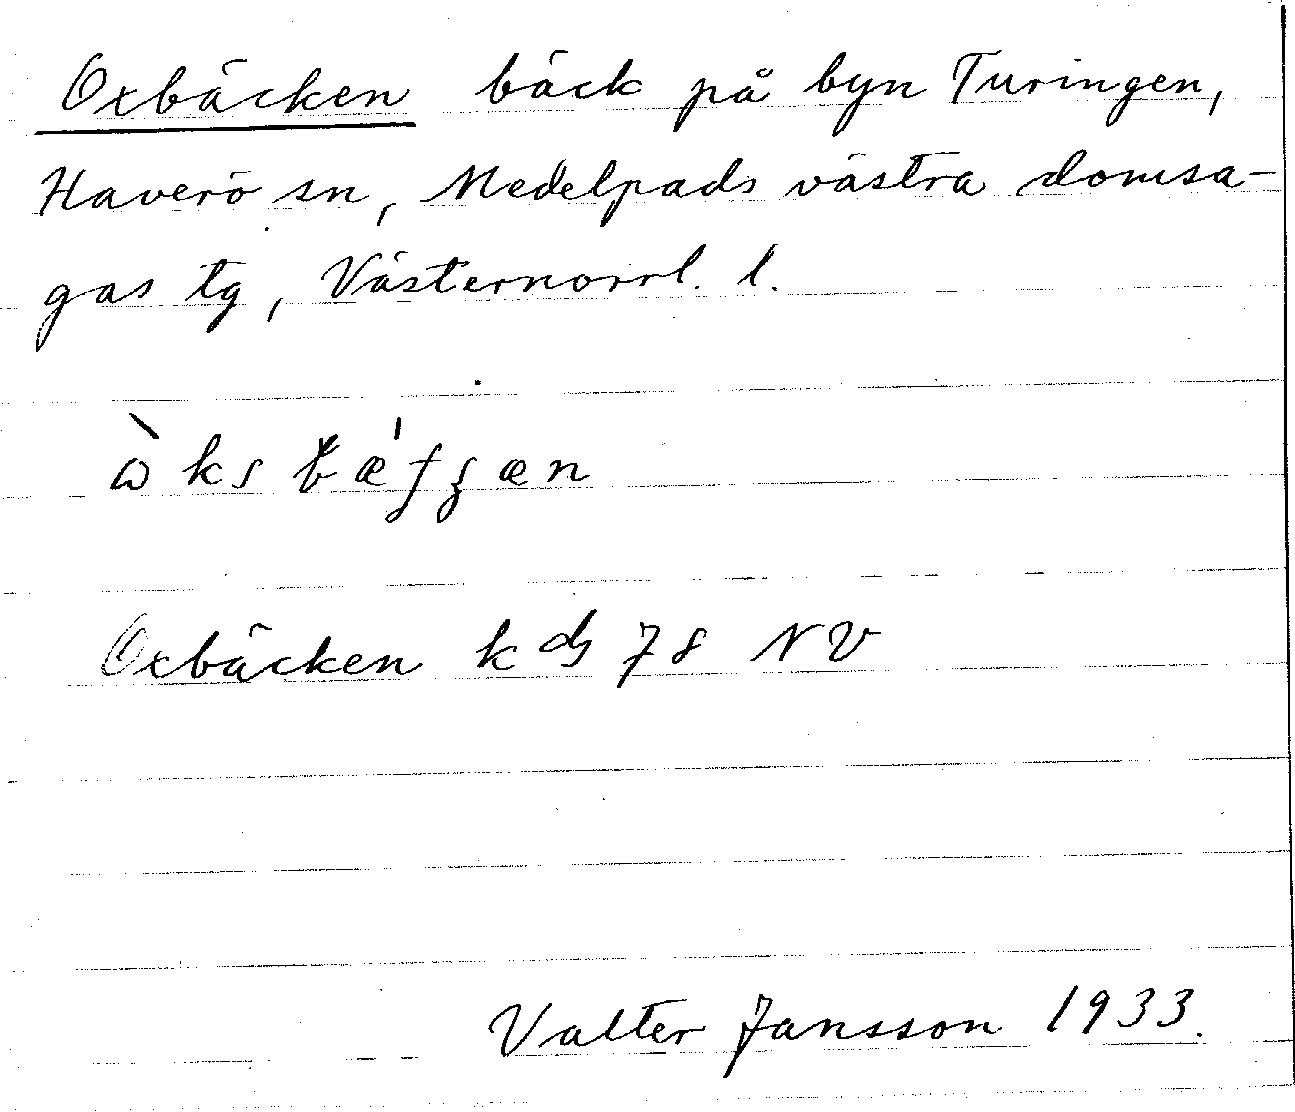 Oxbäcken bäck på byn Turingen,
Haverö sn, Medelpads västra domsa-
gas tg, Västernorrl. l.
Oxbäcken k db 78 NV
Valter Jansson 1933.